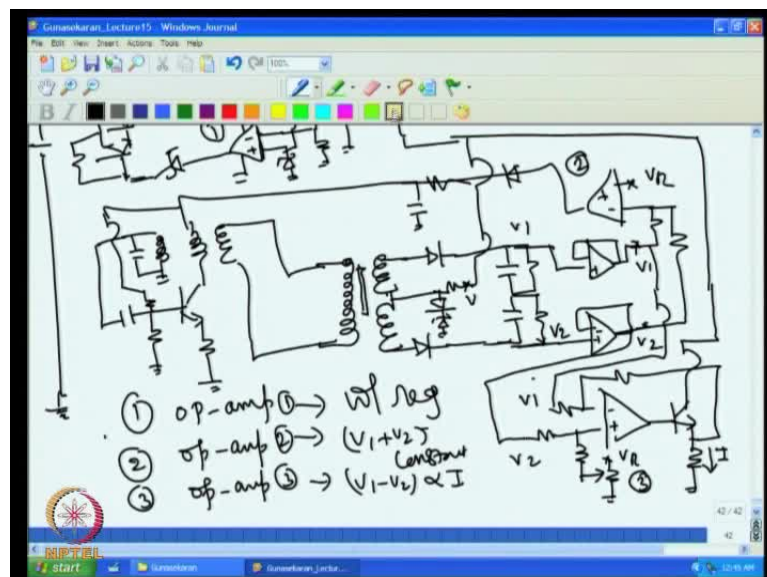 Gunasekaran_Lecture15 - Windows Journal
File Edit View Insert Actions Tools Help
100%
B I
1
2
VR
V1
V1
V
V2
V2
V1
V2
VR
3
I
1 op-amp 1 → w/ reg
2 op-amp 2 → (V1+V2)
constant
3 op-amp 3 → (V1-V2) ∝ I
42 / 42
42
NPTEL
start
Gunasekaran
Gunasekaran_Lectur...
12:45 AM